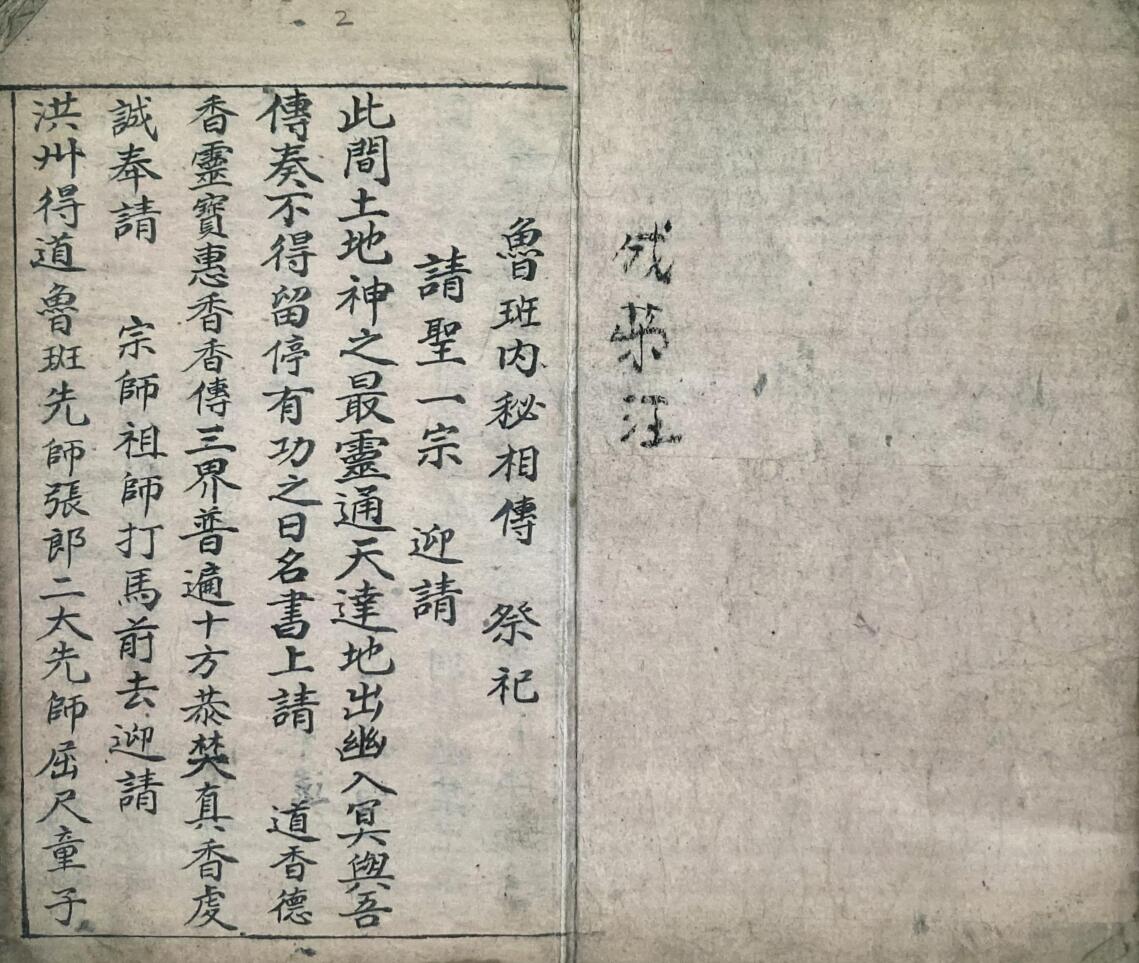 2
茀汪
魯班内秘相傳 祭祀
請聖一宗 迎請
此間土地神之最靈通天達地出幽入冥與吾
傳奏不得留停有功之日名書上請 道香德
香靈寳惠香香傳三界普遍十方恭焚真香虔
誠奉請 宗師祖師打馬前去迎請
洪州得道魯班先師張郎二大先師屈尺童子